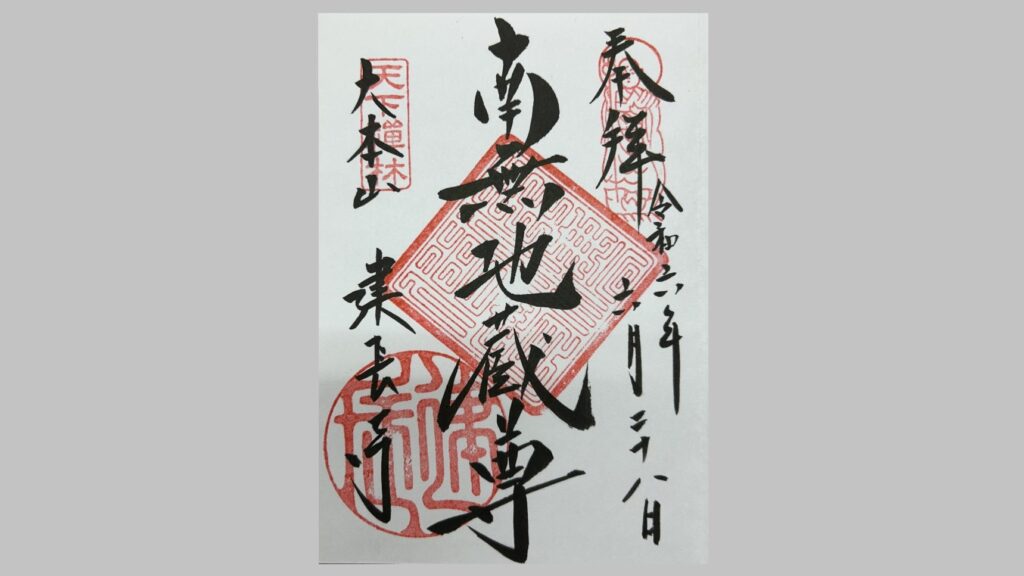 奉拝
令和六年
六月二十八日
南無地蔵尊
天下禅林
大本山
建長寺